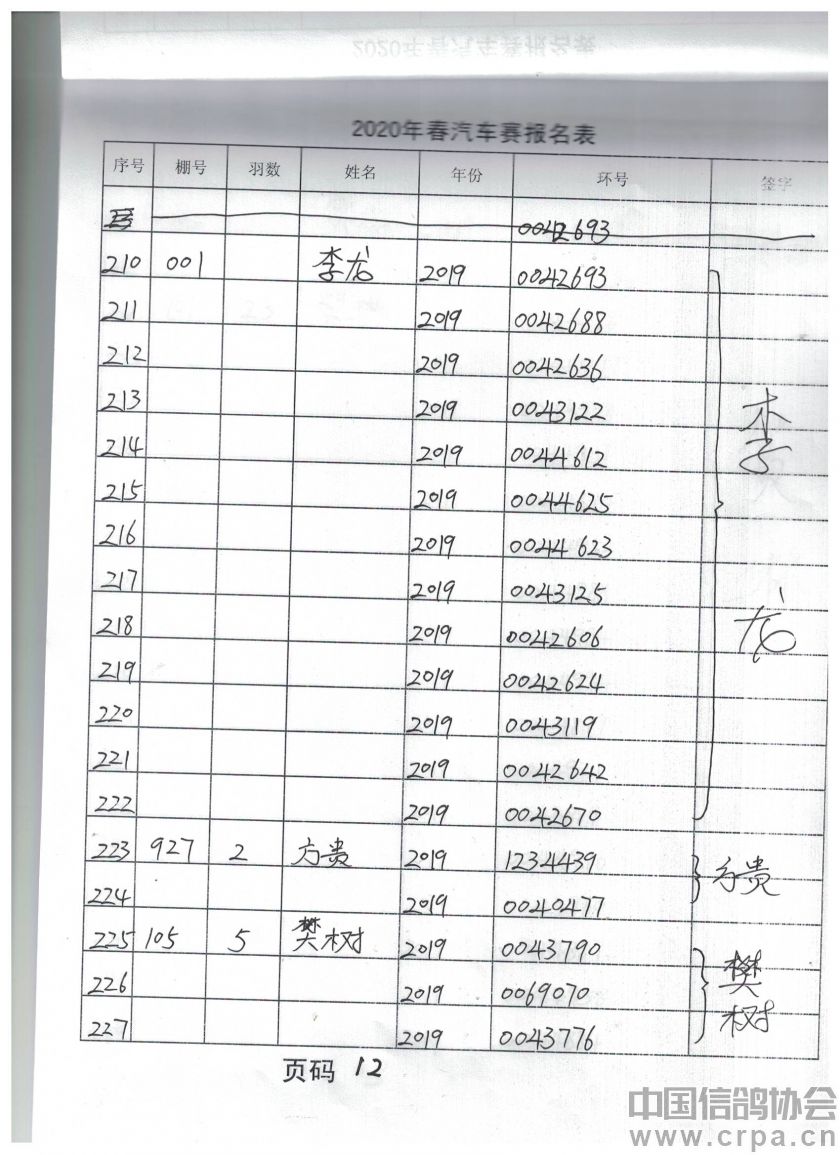 2020年春汽车赛报名表
序号 棚号 羽数 姓名 年份 环号 签字
0042693
210 001 李龙 2019 0042693
211 2019 0042688
212 2019 0042636
213 2019 0043122
214 2019 0044612
215 2019 0044625
216 2019 0044623
217 2019 0043125
218 2019 0042606
219 2019 0042624
220 2019 0043119
221 2019 0042642
222 2019 0042670
李龙
223 927 2 方贵 2019 1234439
224 2019 0040477
方贵
225 105 5 樊树 2019 0043790
226 2019 0069070
227 2019 0043776
樊树
页码 12
中国信鸽协会
www.crpa.cn